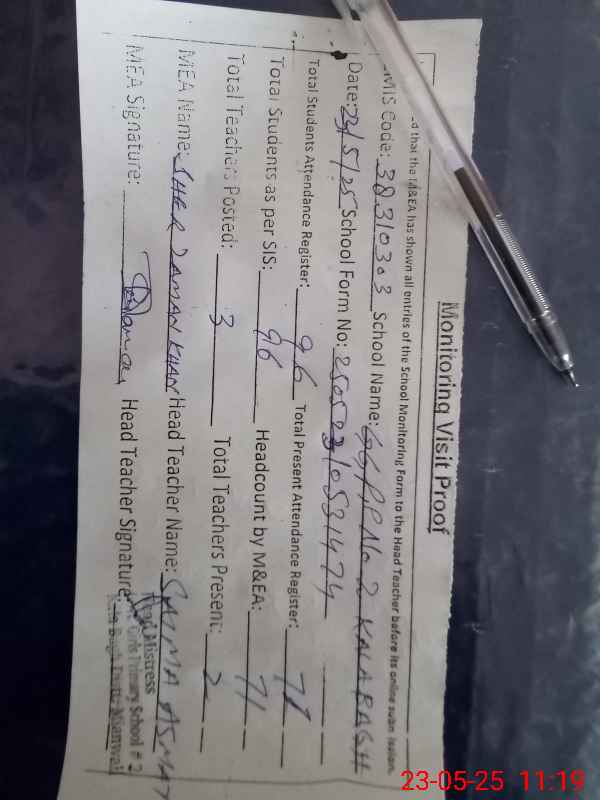 Monitoring Visit Proof
d that the M&EA has shown all entries of the School Monitoring Form to the Head Teacher before its online submission.
MIS Code: 38310303 School Name: GGPP No 2 KALABAGH
Date: 23/5/25 School Form No: 250523105331474
Total Students Attendance Register: 96 Total Present Attendance Register: 71
Total Students as per SIS: 96 Headcount by M&EA: 71
Total Teachers Posted: 3 Total Teachers Present: 2
MEA Name: SHER ZAMAN KHAN Head Teacher Name: SAIMA ASMAT
MEA Signature: Head Teacher Signature:
Head Mistress
Girls Primary School # 2
Mianwali
23-05-25 11:19